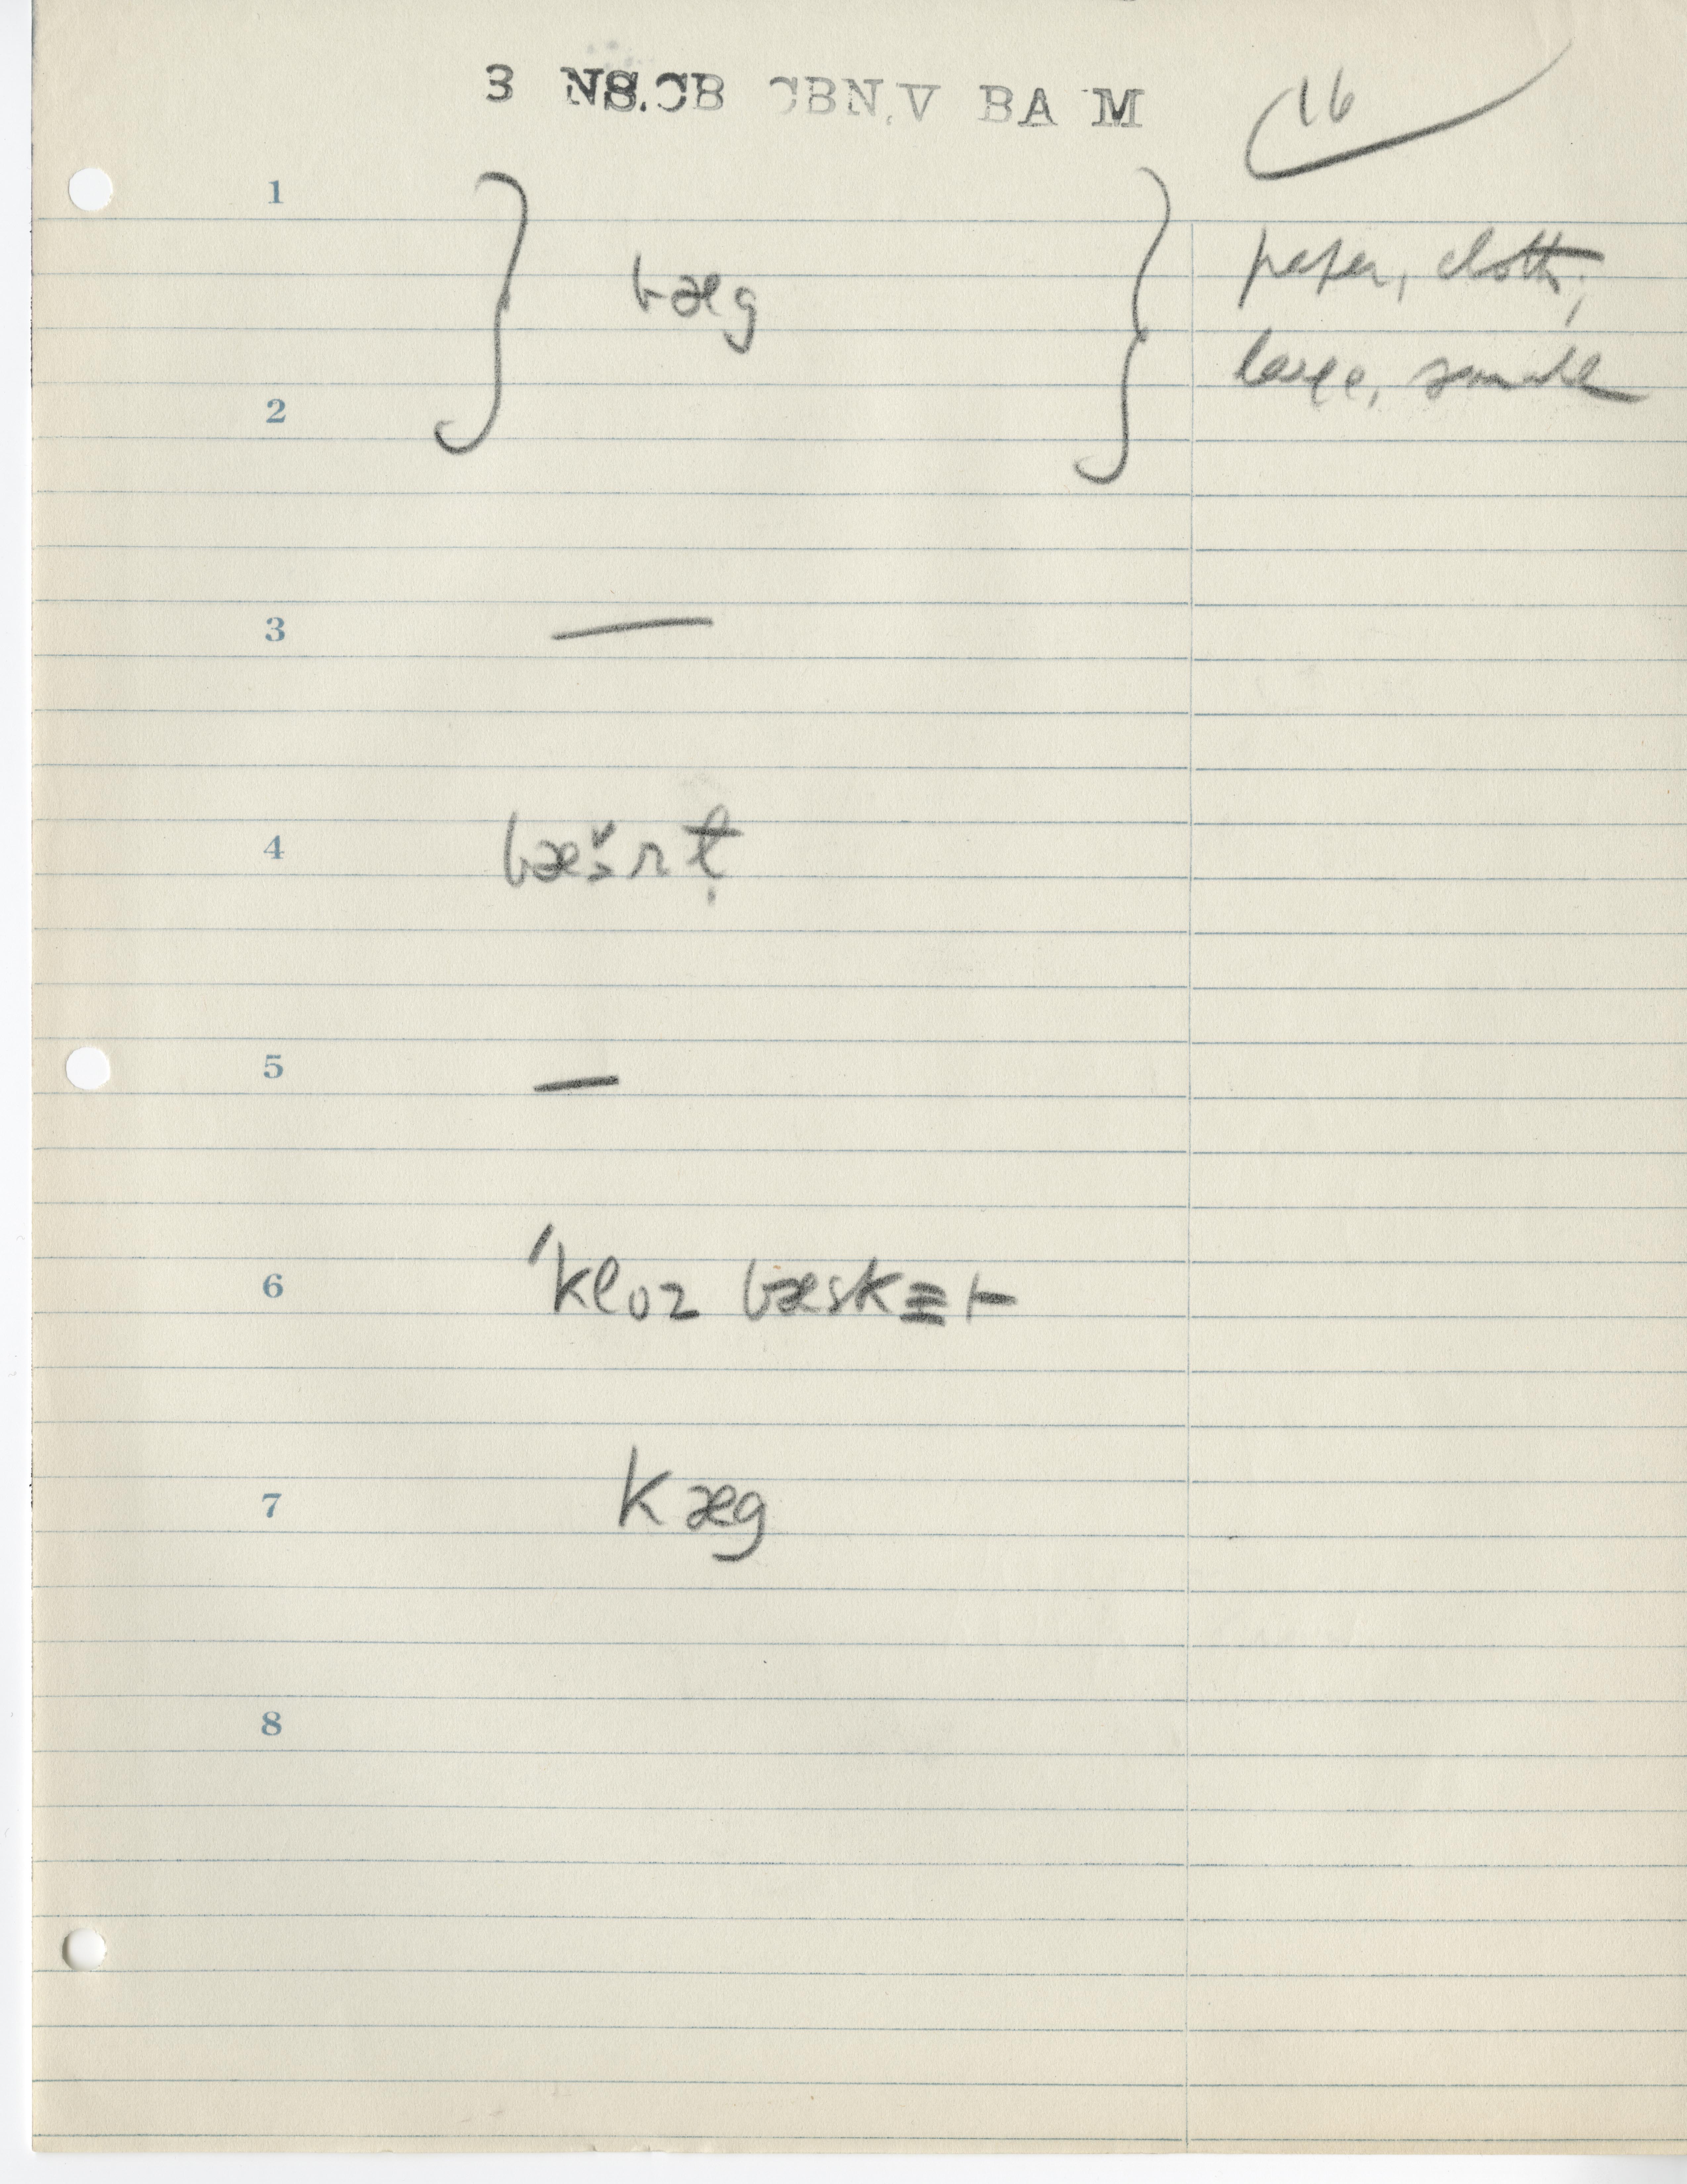 3 NS.CB CBN.V BA M 16
1
bæg
paper, cloth;
large, small
2
3 —
4
5 —
6 ˈkloz bæskət
7 kæg
8